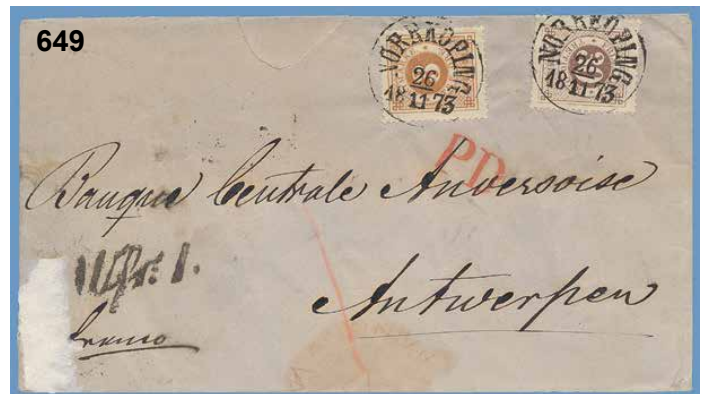 649
NORRKÖPING
26
18 11 73
NORRKÖPING
26
18 11 73
PD
Banque Centrale Anversoise
Antwerpen
franco